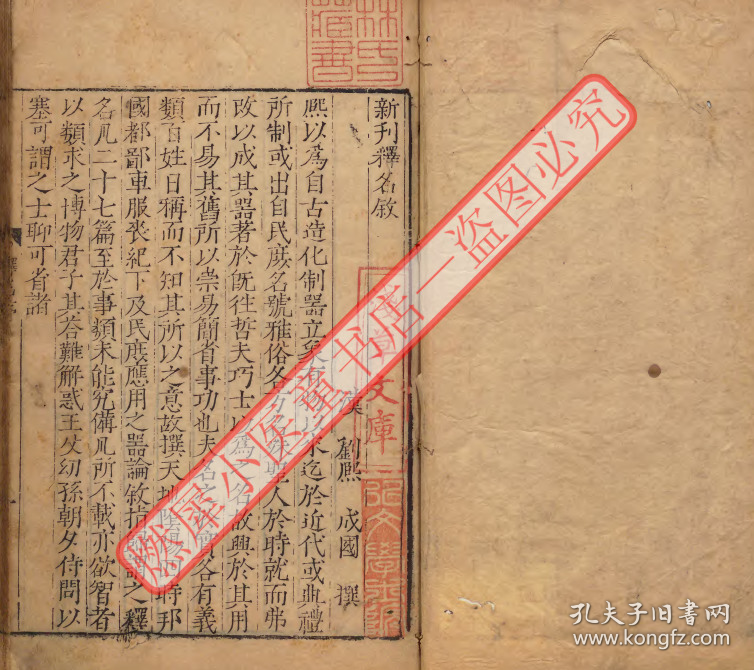 新刊釋名敘
漢 劉熙 成國 撰
熙以爲自古造化制器立象有以來迄於近代或典禮
所制或出自民庶名號雅俗各方名殊聖人於時就而弗
改以成其器著於旣往哲夫巧士以爲之名故興於其用
而不易其舊所以崇易簡省事功也夫名之實各有義
類百姓日稱而不知其所以之意故撰天地陰陽四時邦
國都鄙車服喪紀下及民庶應用之器論敘指歸謂之釋
名凡二十七篇至於事類未能究備凡所不載亦欲智者
以類求之博物君子其於荅難解惑王父幼孫朝夕侍問以
塞可謂之士聊可省諸
林氏藏書
文庫
燃犀小医童书店一盗图必究
孔夫子旧书网
www.kongfz.com